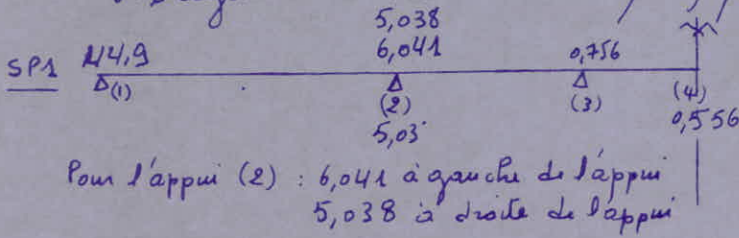 5,038
SP1 6,041 0,756
(1) (2) (3) (4)
5,03 0,556
Pour l'appui (2) : 6,041 à gauche de l'appui
5,038 à droite de l'appui